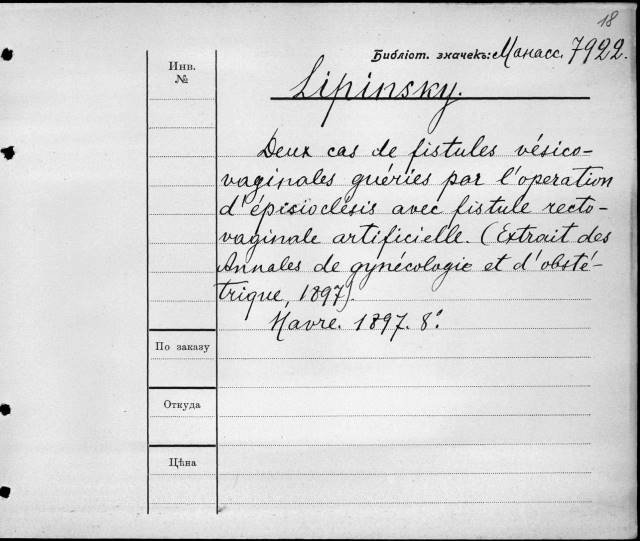 18
Библіот. значекъ: Манасс. 7922.
Инв.
№
Lipinsky.
Deux cas de fistules vésico-
vaginales guéries par l'operation
d'épisioclésis avec fistule recto-
vaginale artificielle. (Extrait des
Annales de gynécologie et d'obsté-
trique, 1897).
Havre. 1897. 8°.
По заказу
Откуда
Цѣна